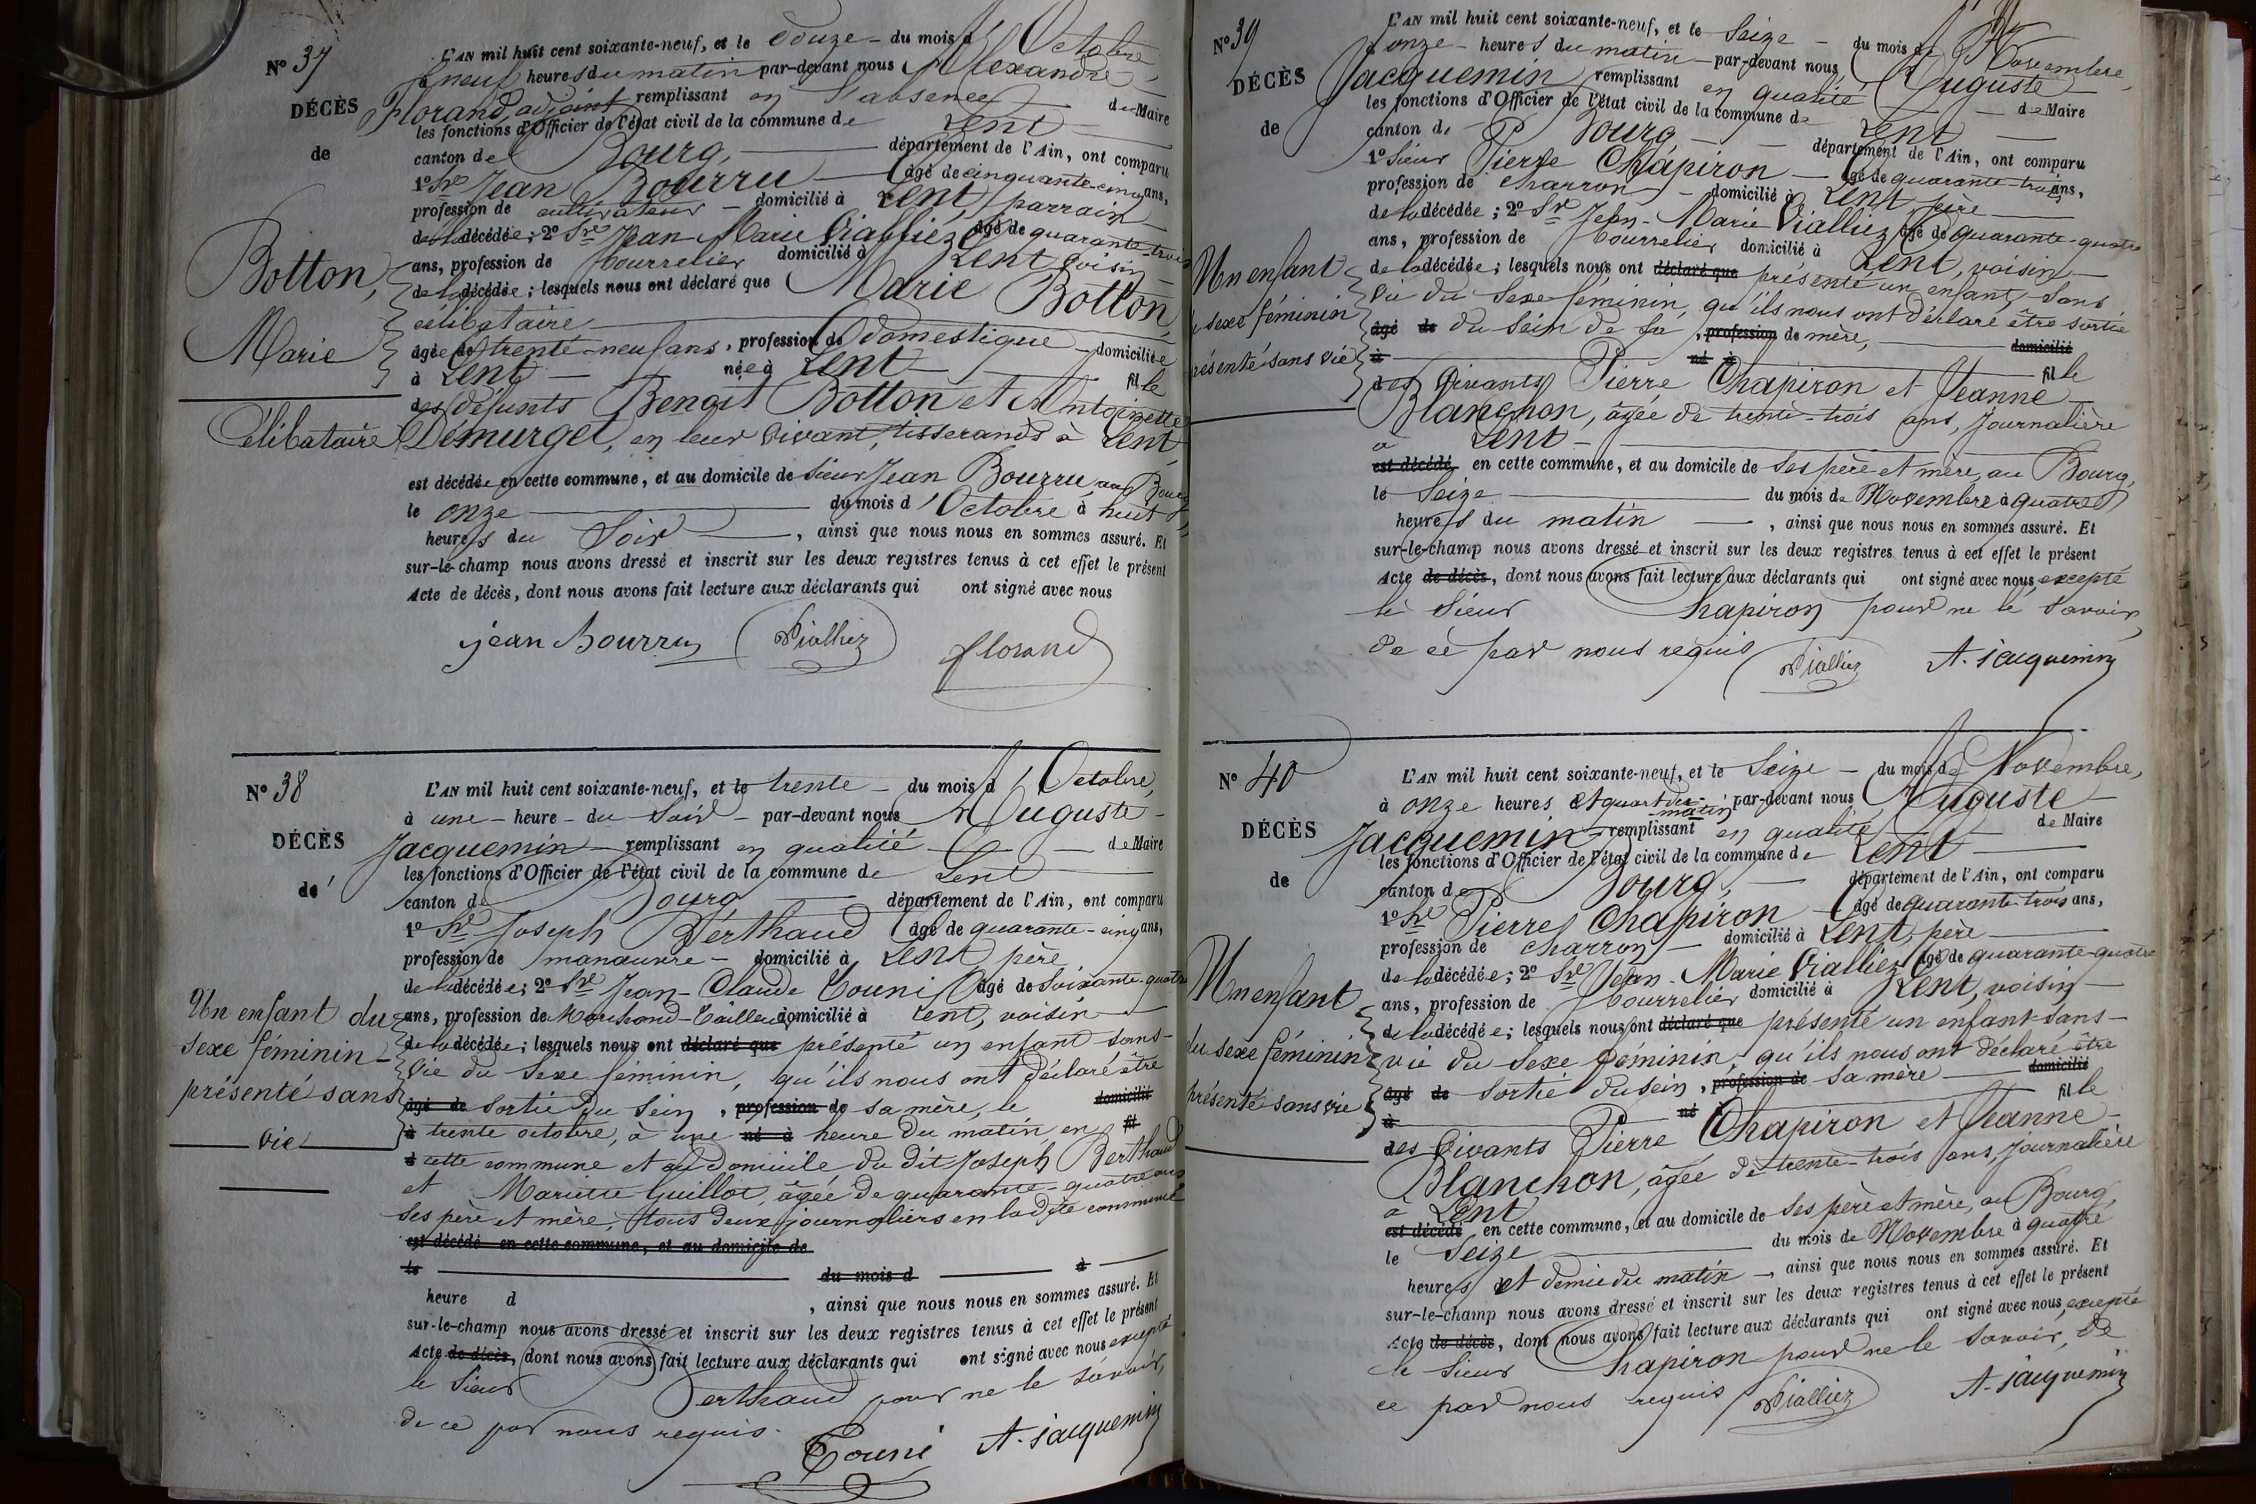 N° 37
DÉCÈS
de
Botton,
Marie
Célibataire
L'AN mil huit cent soixante-neuf, et le douze du mois d'Octobre,
à neuf heures du matin par-devant nous Alexandre
Florand, adjoint remplissant en l'absence de Maire
les fonctions d'Officier de l'état civil de la commune de Lent
canton de Bourg, département de l'Ain, ont comparu
1° Sr Jean Bourru âgé de cinquante-cinq ans,
profession de cultivateur domicilié à Lent, parrain
de la décédée; 2° Sr Jean-Marie Vialliez âgé de quarante-trois
ans, profession de bourrelier domicilié à Lent, voisin
de la décédée; lesquels nous ont déclaré que Marie Botton,
célibataire
âgée de trente-neuf ans, profession de domestique domiciliée
à Lent née à Lent fille
des défunts Benoît Botton et Antoinette
Demurget, en leur vivant, tisserands à Lent,
est décédée en cette commune, et au domicile de sieur Jean Bourru, au Bourg,
le onze du mois d'Octobre à huit
heures du soir, ainsi que nous nous en sommes assuré. Et
sur-le-champ nous avons dressé et inscrit sur les deux registres tenus à cet effet le présent
Acte de décès, dont nous avons fait lecture aux déclarants qui ont signé avec nous
jean Bourru Vialliez florand
N° 38
DÉCÈS
de
Un enfant du
sexe féminin
présenté sans
vie
L'AN mil huit cent soixante-neuf, et le trente du mois d'Octobre,
à une heure du soir par-devant nous Auguste
Jacquemin remplissant en qualité de Maire
les fonctions d'Officier de l'état civil de la commune de Lent
canton de Bourg département de l'Ain, ont comparu
1° Sr Joseph Berthaud âgé de quarante-cinq ans,
profession de manœuvre domicilié à Lent, père
de la décédée; 2° Sr Jean-Claude Touni âgé de soixante-quatre
ans, profession de Marchand-Tailleur domicilié à Lent, voisin
de la décédée; lesquels nous ont déclaré que présenté un enfant sans
vie du sexe féminin, qu'ils nous ont déclaré être
âgé de sortie du sein, profession de sa mère, le domicilié
à trente octobre, à une né à heure du matin, en fil
d cette commune et au domicile du dit Joseph Berthaud
et Mariette Guillot, âgée de quarante-quatre ans
ses père et mère, tous deux journaliers en la dite commune
est décédé en cette commune, et au domicile de
le du mois d à
heure d, ainsi que nous nous en sommes assuré. Et
sur-le-champ nous avons dressé et inscrit sur les deux registres tenus à cet effet le présent
Acte de décès, dont nous avons fait lecture aux déclarants qui ont signé avec nous excepté
le sieur Berthaud pour ne le savoir,
de ce par nous requis.
Touni A. jacquemin
N° 39
DÉCÈS
de
Un enfant
sexe féminin
présenté sans vie
L'AN mil huit cent soixante-neuf, et le Seize du mois de Novembre,
à onze heures du matin par-devant nous, Auguste
Jacquemin remplissant en qualité de Maire
les fonctions d'Officier de l'état civil de la commune de Lent
canton de Bourg département de l'Ain, ont comparu
1° Sieur Pierre Chapiron âgé de quarante-trois ans,
profession de charron domicilié à Lent, père
de la décédée; 2° Sr Jean-Marie Vialliez âgé de quarante-quatre
ans, profession de bourrelier domicilié à Lent, voisin
de la décédée; lesquels nous ont déclaré que présenté un enfant sans
vie du sexe féminin, qu'ils nous ont déclaré être sortie
âgé de du sein de sa, profession de mère, domicilié
à né à fille
des vivants Pierre Chapiron et Jeanne
Blanchon, âgée de trente-trois ans, journalière
à Lent
est décédé en cette commune, et au domicile de ses père et mère, au Bourg,
le Seize du mois de Novembre à quatre
heures du matin, ainsi que nous nous en sommes assuré. Et
sur-le-champ nous avons dressé et inscrit sur les deux registres tenus à cet effet le présent
Acte de décès, dont nous avons fait lecture aux déclarants qui ont signé avec nous, excepté
le sieur Chapiron pour ne le savoir,
de ce par nous requis
Vialliez A. jacquemin
N° 40
DÉCÈS
de
Un enfant
du sexe féminin
présenté sans vie
L'AN mil huit cent soixante-neuf, et le Seize du mois de Novembre,
à onze heures et quart du matin par-devant nous Auguste
Jacquemin remplissant en qualité de Maire
les fonctions d'Officier de l'état civil de la commune de Lent
canton de Bourg, département de l'Ain, ont comparu
1° Sr Pierre Chapiron âgé de quarante-trois ans,
profession de charron domicilié à Lent, père
de la décédée; 2° Sr Jean-Marie Vialliez âgé de quarante-quatre
ans, profession de bourrelier domicilié à Lent, voisin
de la décédée; lesquels nous ont déclaré que présenté un enfant sans
vie du sexe féminin, qu'ils nous ont déclaré être
âgé de sortie du sein, profession de sa mère domicilié
à né à fille
des vivants Pierre Chapiron et Jeanne
Blanchon, âgée de trente-trois ans, journalière
à Lent
est décédé en cette commune, et au domicile de ses père et mère, au Bourg,
le Seize du mois de Novembre à quatre
heures et demie du matin, ainsi que nous nous en sommes assuré. Et
sur-le-champ nous avons dressé et inscrit sur les deux registres tenus à cet effet le présent
Acte de décès, dont nous avons fait lecture aux déclarants qui ont signé avec nous, excepté
le sieur Chapiron pour ne le savoir, de
ce par nous requis
Vialliez A. jacquemin